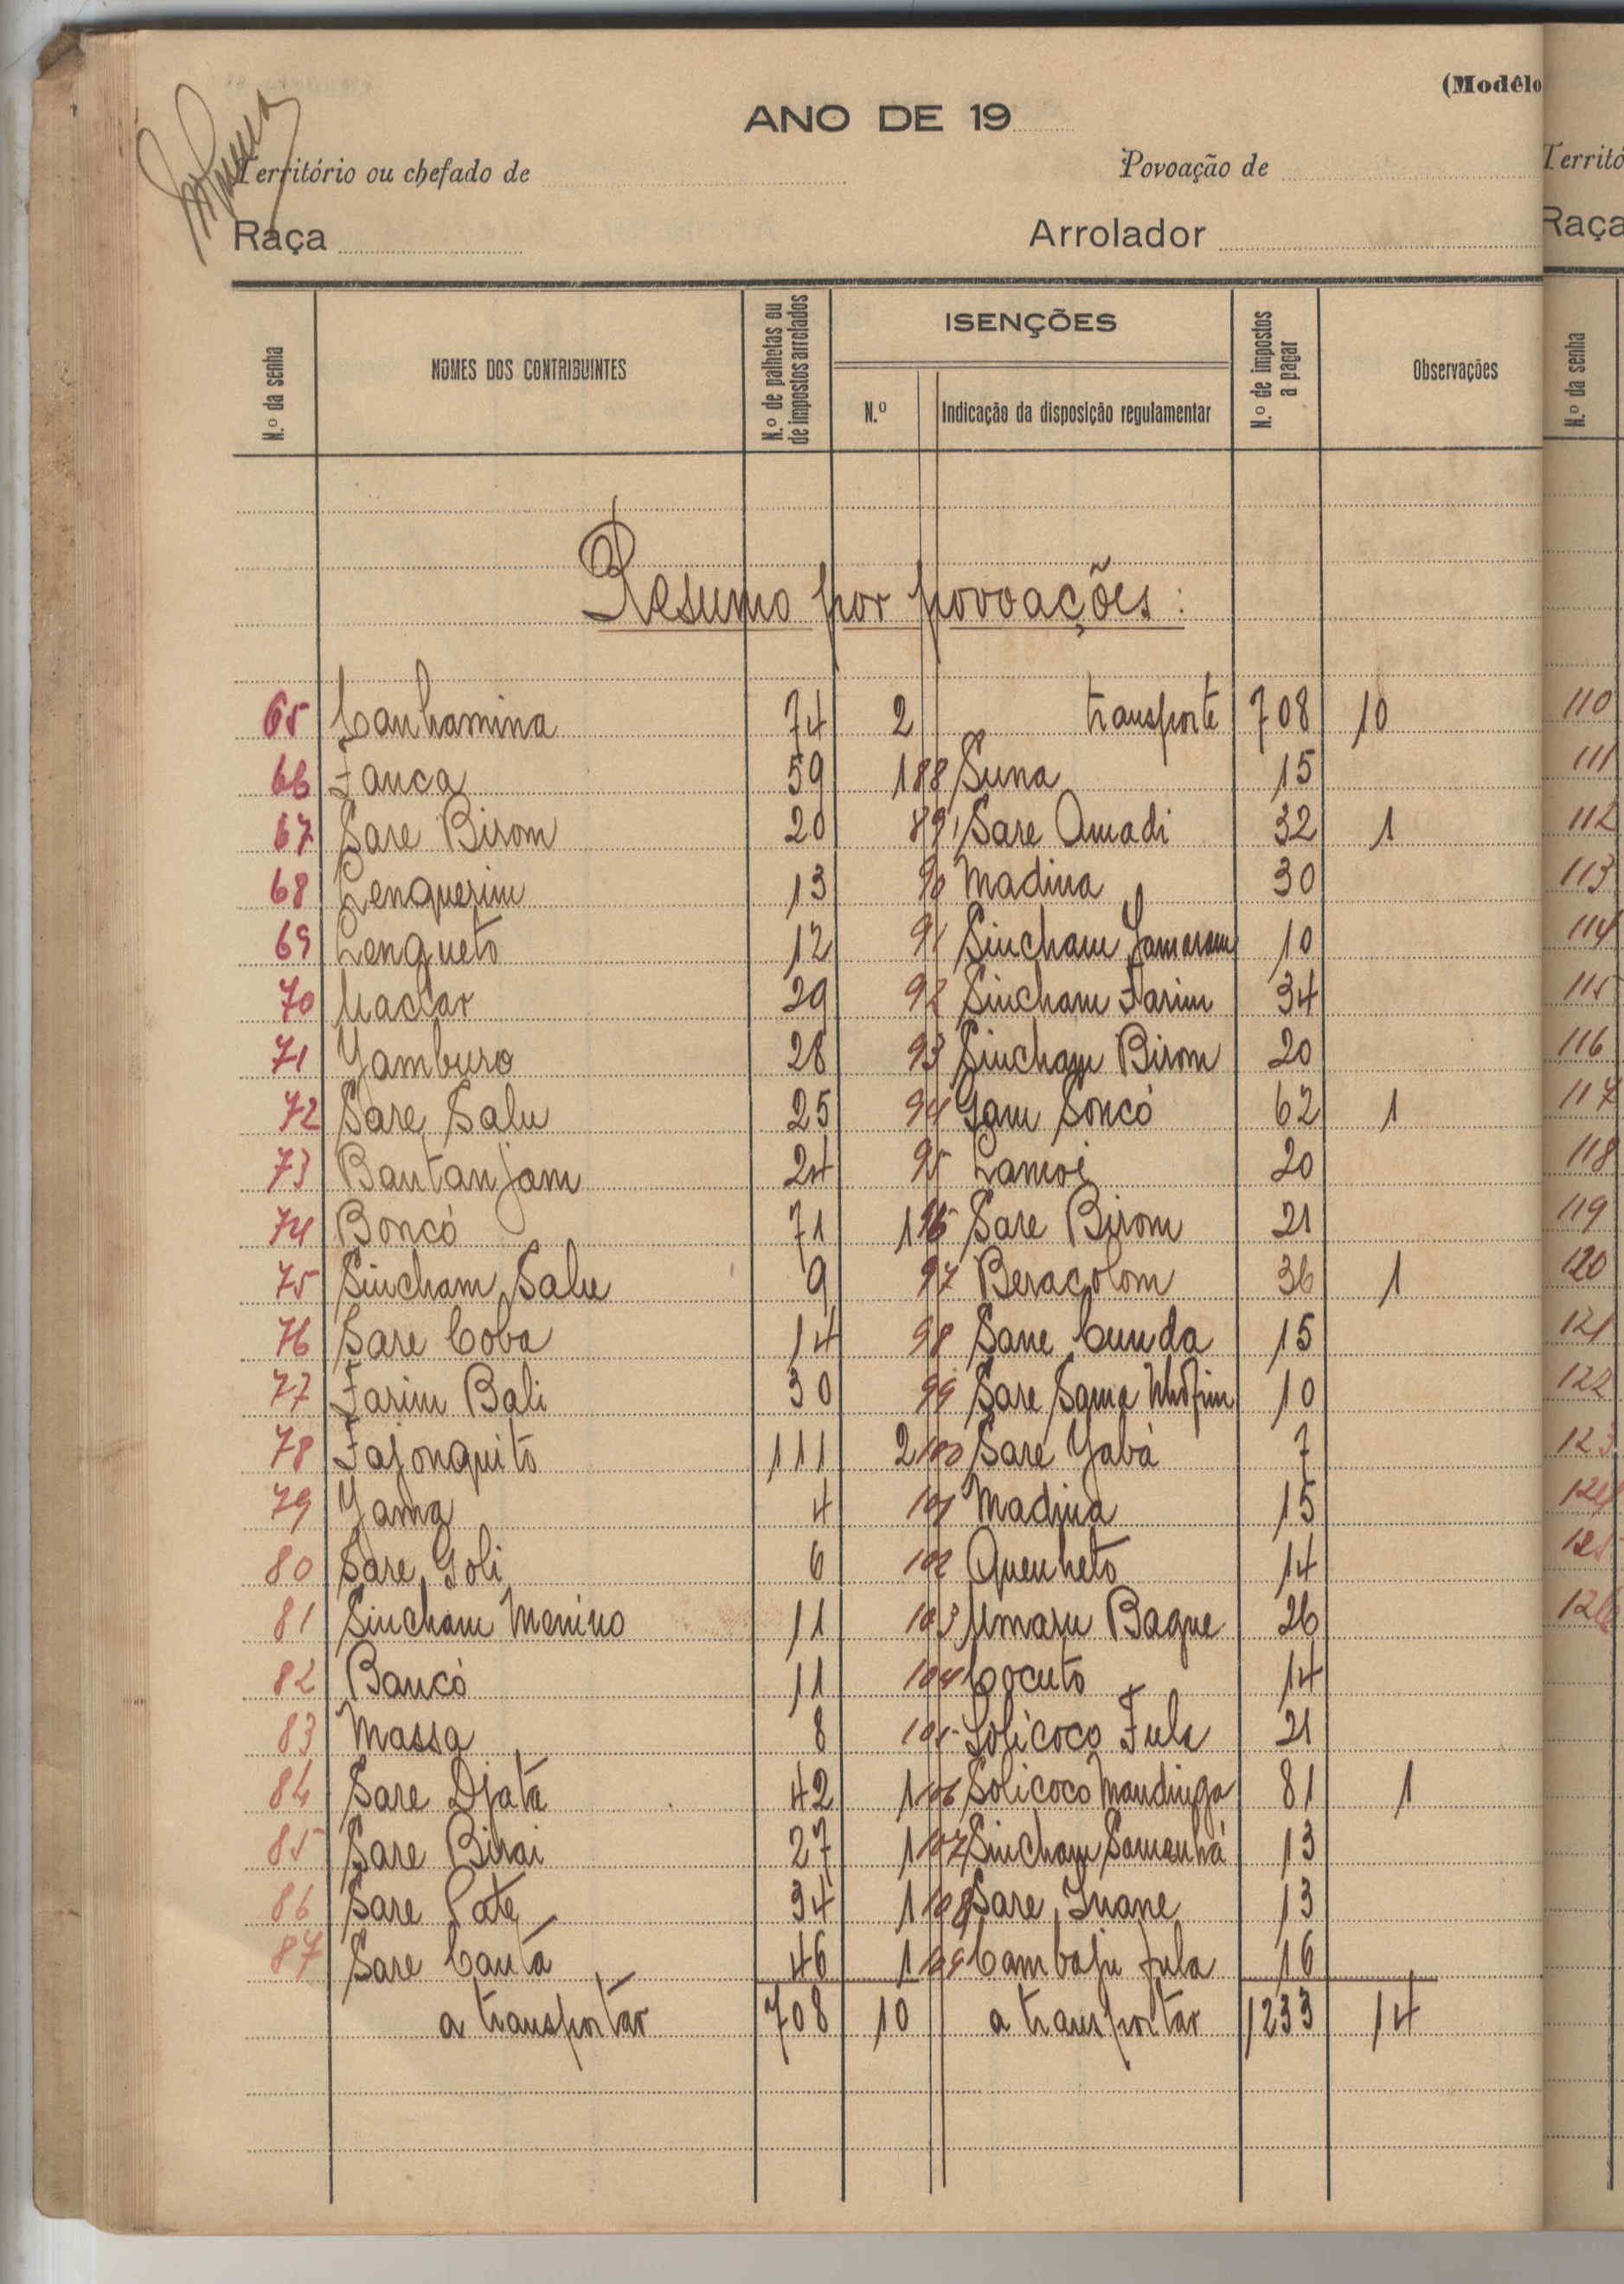 (Modêlo
ANO DE 19
Território ou chefado de Povoação de
Raça Arrolador
N.º da senha NOMES DOS CONTRIBUINTES N.º de palhotas ou de impostos arrolados ISENÇÕES N.º Indicação da disposição regulamentar N.º de impostos a pagar Observações
Resumo por povoações:
65 Canhamina 74 2 transporte 708 10
66 Fanca 59 1 88 Suna 15
67 Sare Birom 20 89 Sare Amadi 32 1
68 Lenquerim 13 90 Madina 30
69 Lenqueto 12 91 Sincham 10
70 29 92 Sincham Farim 34
71 Yamburo 28 93 Sincham Birom 20
72 Sare Salu 25 94 Gam Soncó 62 1
73 Bantanjam 24 95 Lamoi 20
74 Boncó 71 1 96 Sare Birom 21
75 Sincham Salu 9 97 Beracolom 36 1
76 Sare Coba 14 98 Sane Cunda 15
77 Farim Bali 30 99 Sare 10
78 Fajonquito 111 2 100 Sare Yabá 7
79 Yama 4 101 Madina 15
80 Sare Goli 6 102 Quenheto 14
81 Sincham Menino 11 103 Umaru Baque 26
82 Bancó 11 104 Cocuto 14
83 Massa 8 105 Solicoco Fula 21
84 Sare Djata 42 1 106 Solicoco Mandinga 81 1
85 Sare Birai 27 1 107 Sincham Samanhá 13
86 Sare Pate 34 1 108 Sare Inane 13
87 Sare Cautá 46 1 109 Cambaju Fula 16
a transportar 708 10 a transportar 1233 14
Territó
Raça
N.º da senha
110
111
112
113
114
115
116
117
118
119
120
121
122
123
124
125
126